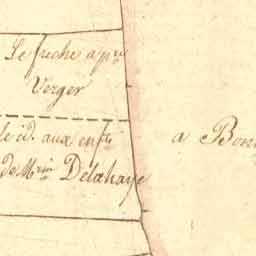 Le friche a pre
Verger
le id. aux enfts
de Mr Delahaye
a Bon